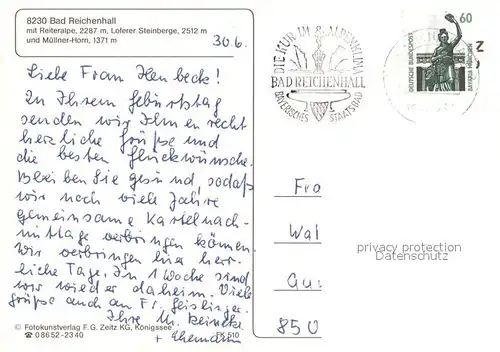 8230 Bad Reichenhall
mit Reiteralpe, 2287 m, Loferer Steinberge, 2512 m
und Müllner-Horn, 1371 m
30.6.
Liebe Frau Henbeck!
Zu Ihrem Geburtstag
senden wir Ihnen recht
herzliche Grüße und
die besten Glückwünsche.
Bleiben Sie gesund, sodaß
wir noch viele Jahre
gemeinsame Kartelnach-
mittage verbringen können.
Wir verbringen hier herr-
liche Tage. In 1 Woche sind
wir wieder daheim. Viele
Grüße auch an Fr. Geislinger.
Ihre M. Reinecke
+ Ehemann
© Fotokunstverlag F. G. Zeitz KG, Königssee
☎ 08652-2340
FK 510
DIE KUR IM ALPENKLIMA
BAD REICHENHALL
BAYERISCHES STAATSBAD
60
DEUTSCHE BUNDESPOST
BAVARIA MÜNCHEN
z
Fra
Wal
privacy protection
Datenschutz
Gu
850